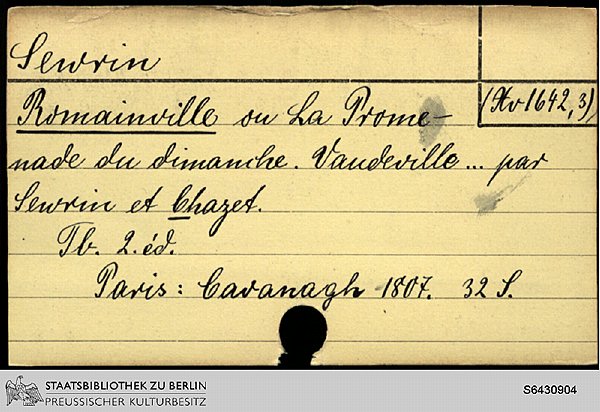 Sewrin
(Xv 1642,3)
Romainville ou La Prome-
nade du dimanche. Vaudeville... par
Sewrin et Chazet.
Tb. 2. éd.
Paris: Cavanagh 1807. 32 S.
STAATSBIBLIOTHEK ZU BERLIN
PREUSSISCHER KULTURBESITZ
S6430904